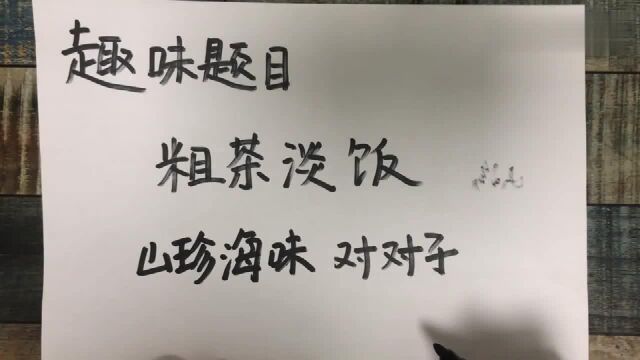 趣味题目
粗茶淡饭
山珍海味 对对子